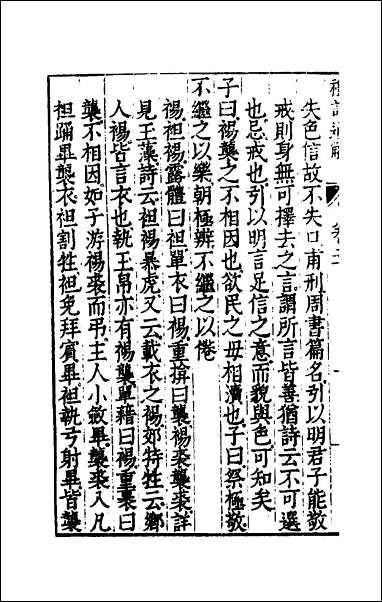 失色信故不失口甫刑周書篇名引以明君子能敬
戒則身無可擇去之言謂所言皆善猶詩云不可選
也忌戒也引以明言足信之意而貌與色可知矣
子曰裼襲之不相因也欲民之毋相瀆也子曰祭極敬
不繼之以樂朝極辨不繼之以倦
裼袒裼露體曰袒單衣曰裼重揜曰襲裼裘襲裘詳
見玉藻詩云袒裼暴虎又云載衣之裼郊特牲云鄉
人裼皆言衣也執玉帛亦有裼襲單藉曰裼重裹曰
襲不相因如子游裼裘而弔主人小斂畢襲裘入凡
袒踊畢襲衣袒割牲袒免拜賓畢袒執弓射畢皆襲